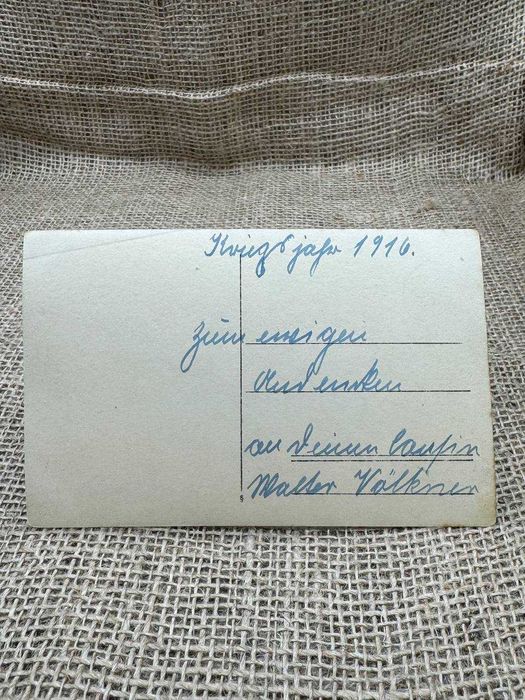 Kriegsjahr 1916.
Zum ewigen
Andenken
an Deinen Cousin
Walter Völkner